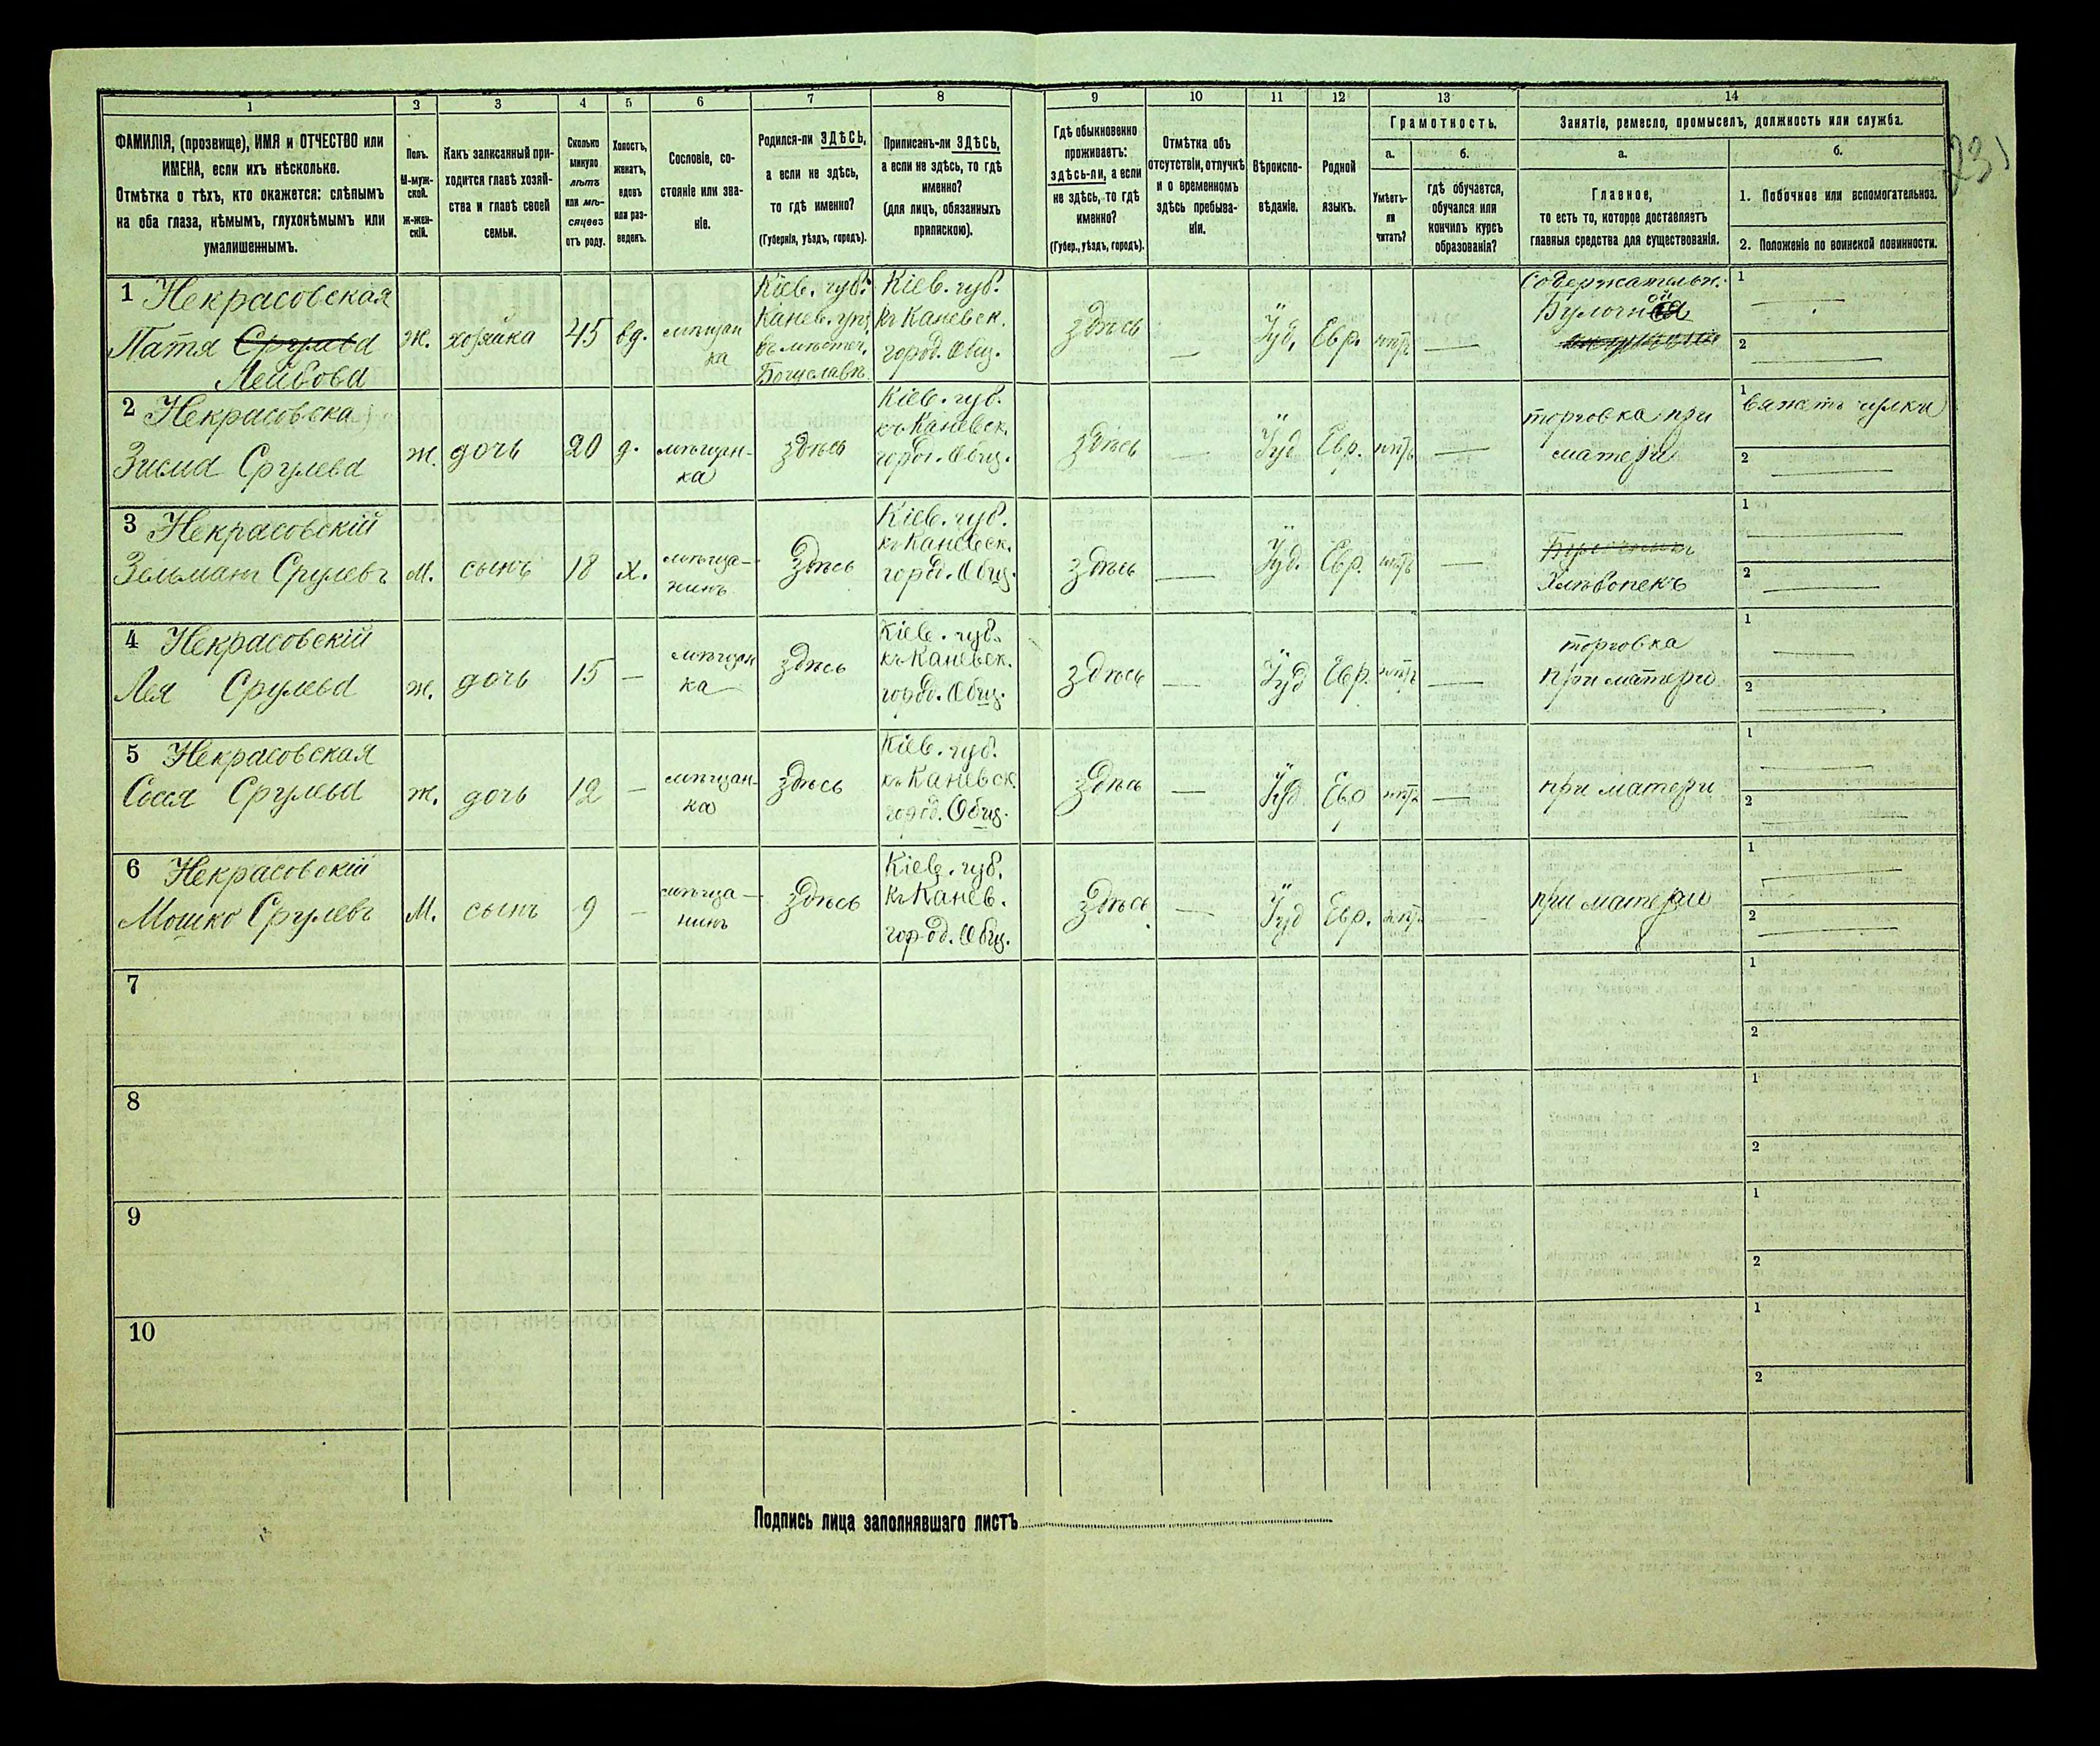 1 2 3 4 5 6 7 8 9 10 11 12 13 14
ФАМИЛІЯ, (прозвище), ИМЯ и ОТЧЕСТВО или
ИМЕНА, если ихъ нѣсколько.
Отмѣтка о тѣхъ, кто окажется: слѣпымъ
на оба глаза, нѣмымъ, глухонѣмымъ или
умалишеннымъ.
Полъ.
М-муж-
ской.
Ж-жен-
скій.
Какъ записанный при-
ходится главѣ хозяй-
ства и главѣ своей
семьи.
Сколько
минуло
лѣтъ
или мѣ-
сяцевъ
отъ роду.
Холостъ,
женатъ,
вдовъ
или раз-
веденъ.
Сословіе, со-
стояніе или зва-
ніе.
Родился-ли ЗДѢСЬ,
а если не здѣсь,
то гдѣ именно?
(Губернія, уѣздъ, городъ).
Приписанъ-ли ЗДѢСЬ,
а если не здѣсь, то гдѣ
именно?
(для лицъ, обязанныхъ
припискою).
Гдѣ обыкновенно
проживаетъ:
здѣсь-ли, а если
не здѣсь, то гдѣ
именно?
(Губер., уѣздъ, городъ).
Отмѣтка объ
отсутствіи, отлучкѣ
и о временномъ
здѣсь пребыва-
ніи.
Вѣроиспо-
вѣданіе.
Родной
языкъ.
Грамотность.
а.
Умѣетъ-
ли
читать?
б.
гдѣ обучается,
обучался или
кончилъ курсъ
образованія?
Занятіе, ремесло, промыселъ, должность или служба.
а.
Главное,
то есть то, которое доставляетъ
главныя средства для существованія.
б.
1. Побочное или вспомогательное.
2. Положеніе по воинской повинности.
231
1 Некрасовская
Патя Срулева
Лейбова
ж.
хозяйка
45
вд.
мѣщан
ка
Кіев. губ.
Канев. уѣз.
въ мѣстеч.
Богуславѣ
Кіев. губ.
къ Каневск.
город. Общ.
здѣсь
Іуд.
Евр.
нѣтъ
Содержательн.
Булочной
1
2
2 Некрасовска
Зисля Срулева
ж.
дочь
20
д.
мѣщан-
ка
здѣсь
Кіев. губ.
къ Каневск.
город. Общ.
здѣсь
Іуд
Евр.
нѣтъ
торговка при
матери
1 вяжетъ чулки
2
3 Некрасовскій
Зельманъ Срулевъ
М.
сынъ
18
х.
мѣща-
нинъ
здѣсь
Кіев. губ.
къ Каневск.
город. Общ.
здѣсь
Іуд.
Евр.
нѣтъ
Булочникъ
Хлѣбопекъ
1
2
4 Некрасовскій
Лея Срулева
ж.
дочь
15
мѣщан
ка
здѣсь
Кіев. губ.
къ Каневск.
город. Общ.
здѣсь
Іуд
Евр.
нѣтъ
торговка
при матери
1
2
5 Некрасовская
Сося Срулева
ж.
дочь
12
мѣщан-
ка
здѣсь
Кіев. губ.
къ Каневск
город. Общ.
здѣсь
Іуд
Евр
нѣтъ
при матери
1
2
6 Некрасовскій
Мошко Срулевъ
М.
сынъ
9
мѣща-
нинъ
здѣсь
Кіев. губ.
къ Канев.
город. Общ.
здѣсь
Іуд
Евр.
нѣтъ
при матери
1
2
7
1
2
8
1
2
9
1
2
10
1
2
Подпись лица заполнявшаго листъ